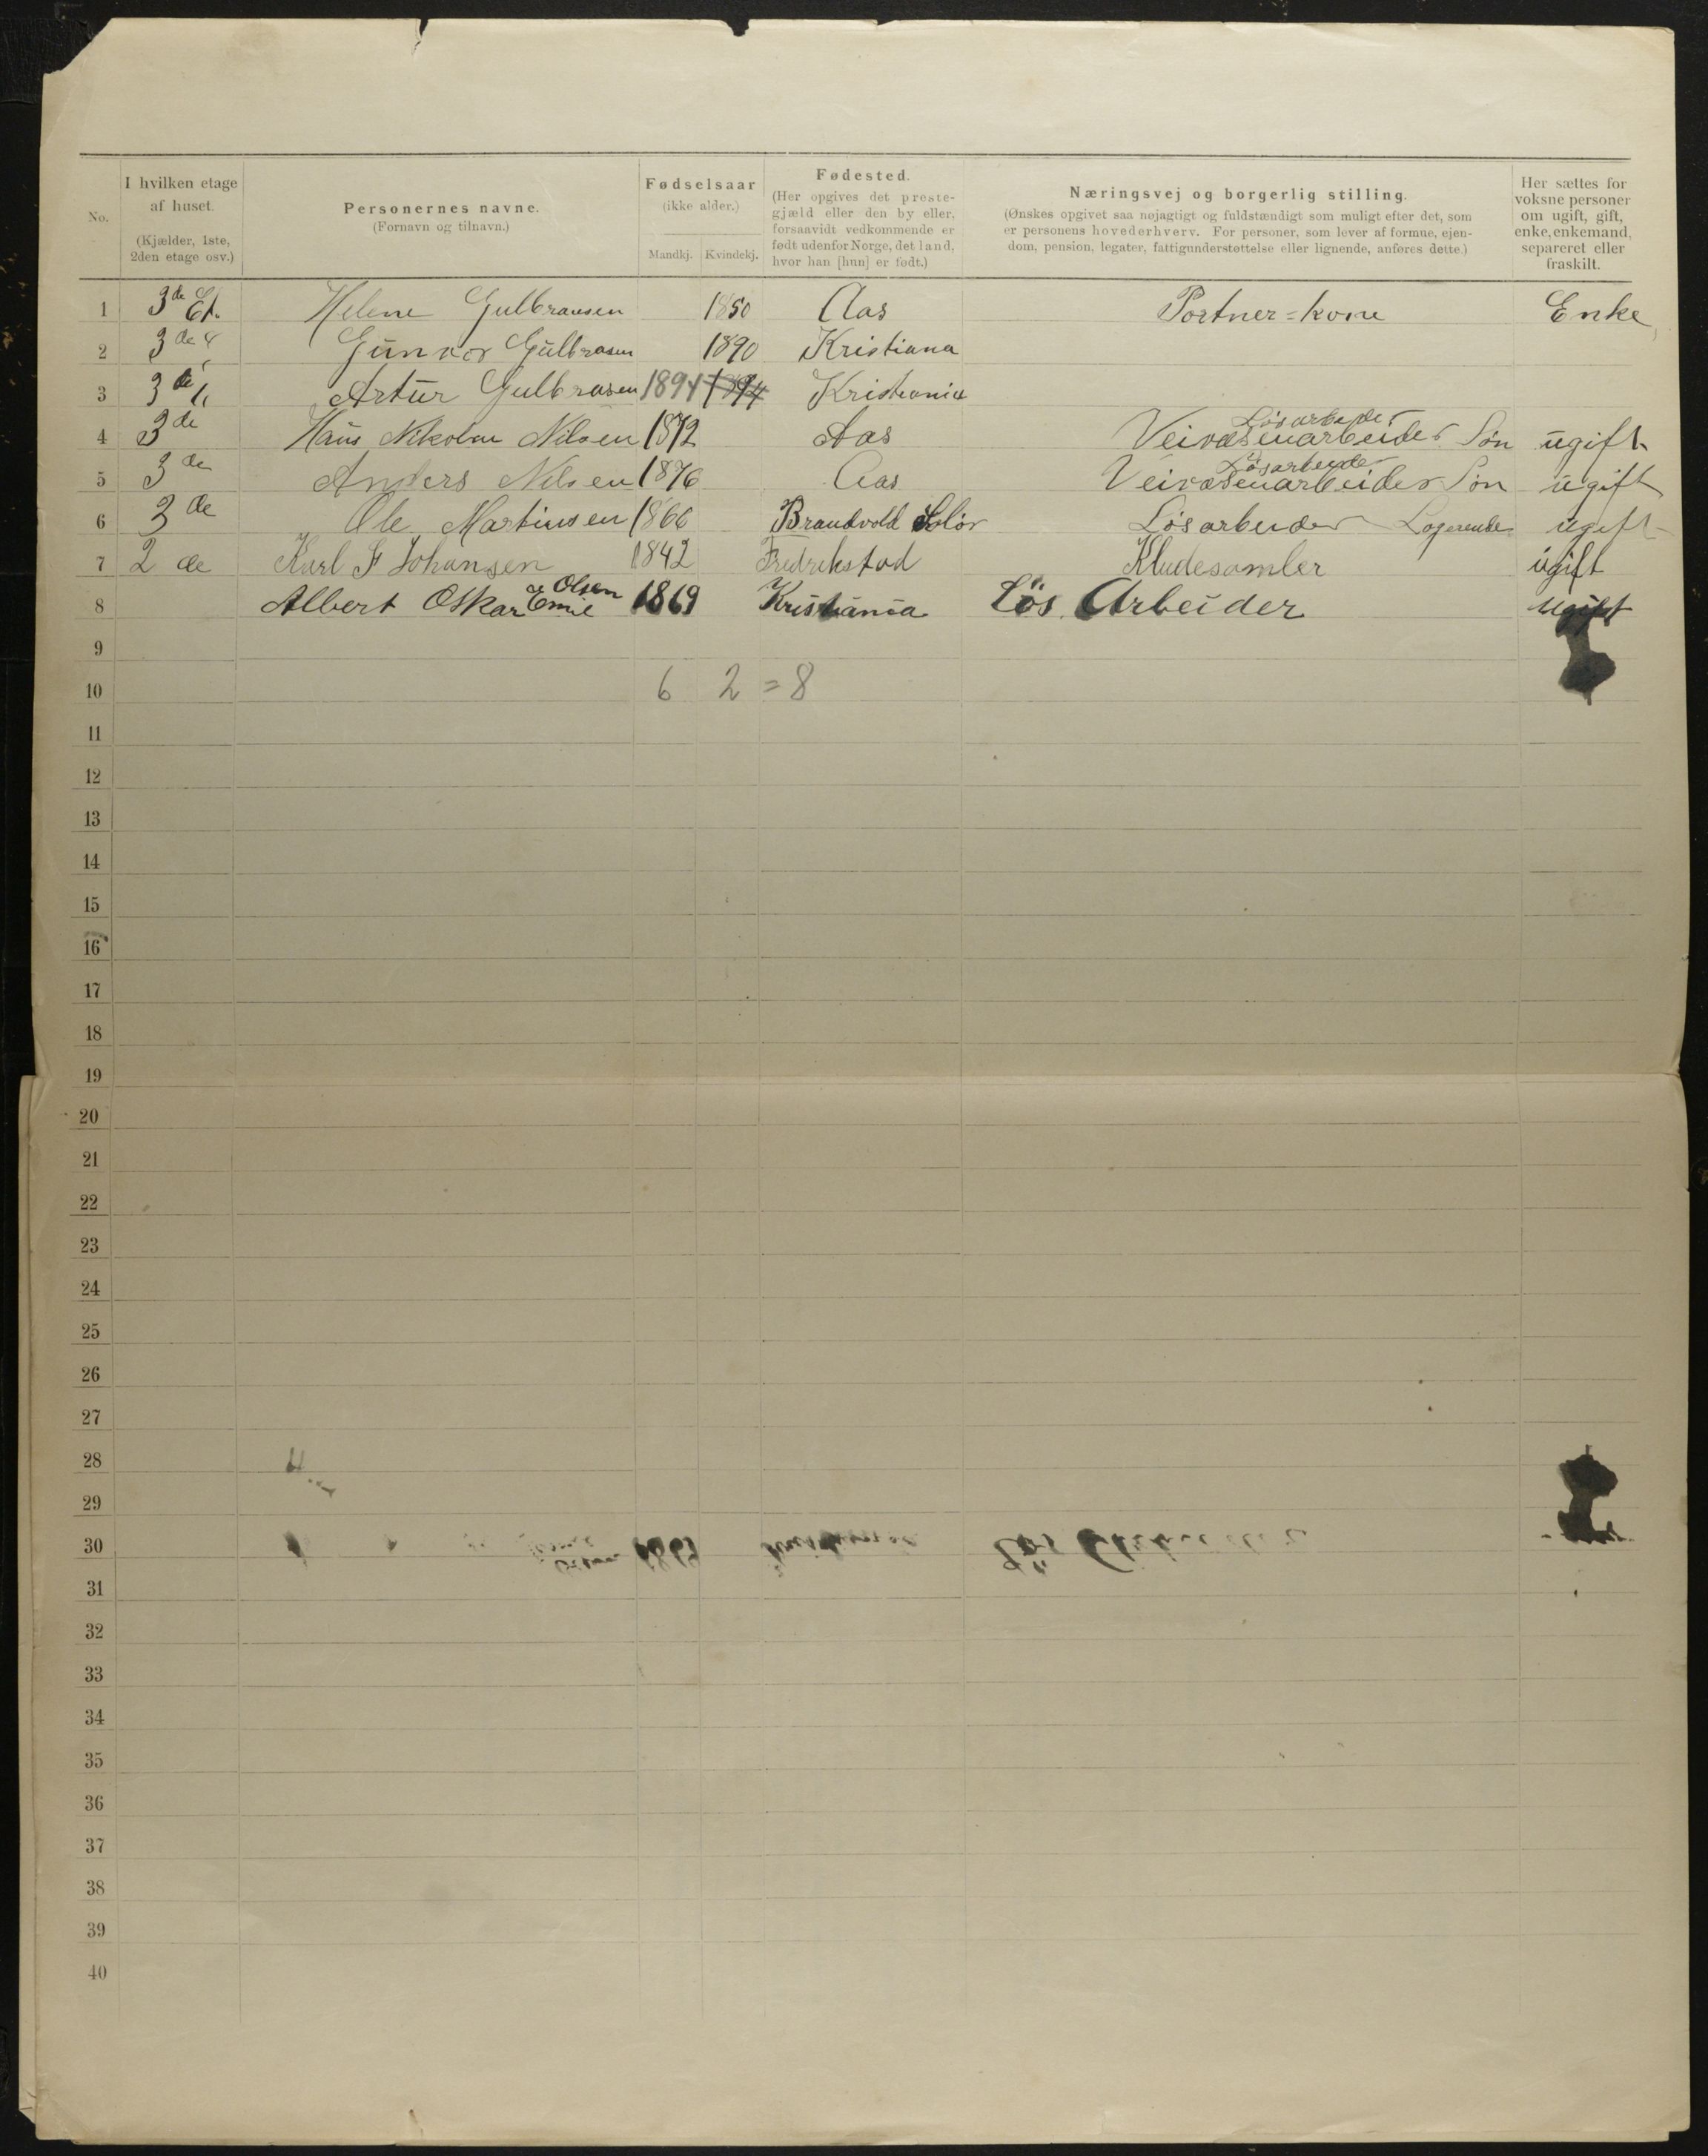 No.
I hvilken etage af huset.
(Kjælder, 1ste, 2den etage osv.)
Personernes navne.
(Fornavn og tilnavn.)
Fødselsaar
(ikke alder.)
Mandkj. Kvindekj.
Fødested.
(Her opgives det preste-
gjæld eller den by eller,
forsaavidt vedkommende er
født udenfor Norge, det land,
hvor han [hun] er født.)
Næringsvej og borgerlig stilling.
(Ønskes opgivet saa nøjagtigt og fuldstændigt som muligt efter det, som
er personens hovederhverv. For personer, som lever af formue, ejen-
dom, pension, legater, fattigunderstøttelse eller lignende, anføres dette.)
Her sættes for
voksne personer
om ugift, gift,
enke, enkemand,
separeret eller
fraskilt.
1 3de Et. Helene Gulbransen 1850 Aas Portner=kone Enke
2 3de Gunvor Gulbrasen 1890 Kristiana
3 3de Artur Gulbrasen 1894 1894 Kristiania
Løsarbeider
4 3de Hans Nikolai Nilsen 1872 Aas Veivæsenarbeider Søn ugift
Løsarbeider
5 3de Anders Nilsen 1876 Aas Veivæsenarbeider Søn ugift
6 3de Ole Martinsen 1866 Brandvold Solør Løsarbeider Logerende ugift
7 2de Karl F Johansen 1842 Fredrikstad Kludesamler ugift
Olsen
8 Albert Oskar Emil 1869 Kristiania Løs Arbeider ugift
9
10 6 2 = 8
11
12
13
14
15
16
17
18
19
20
21
22
23
24
25
26
27
28
29
30
31
32
33
34
35
36
37
38
39
40